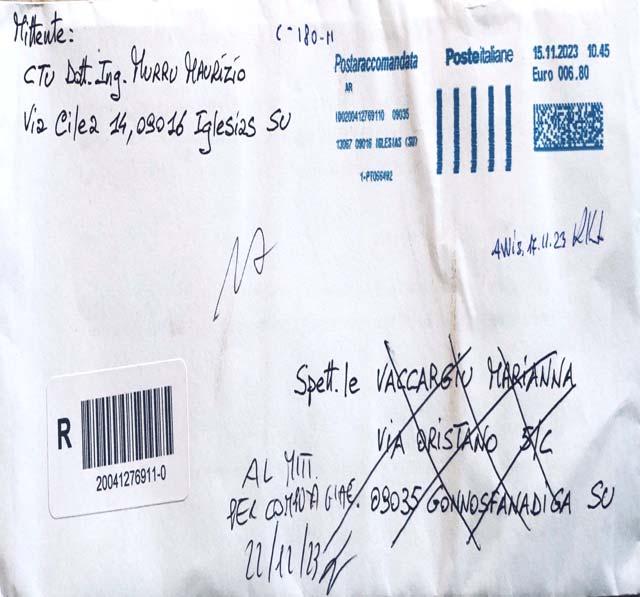 Mittente:
CTU Dott. Ing. MURRU MAURIZIO
Via Cilea 14, 09016 Iglesias SU
C-180-M
Postaraccomandata
AR
13067 09016 IGLESIAS (SU)
Posteitaliane
15.11.2023 10.45
Euro 006.80
17.11.23
R
20041276911-0
Spett.le VACCARGIU MARIANNA
VIA ORISTANO 5/C
09035 GONNOSFANADIGA SU
AL MITT
PER COMPIUTA GIAC.
22/12/23